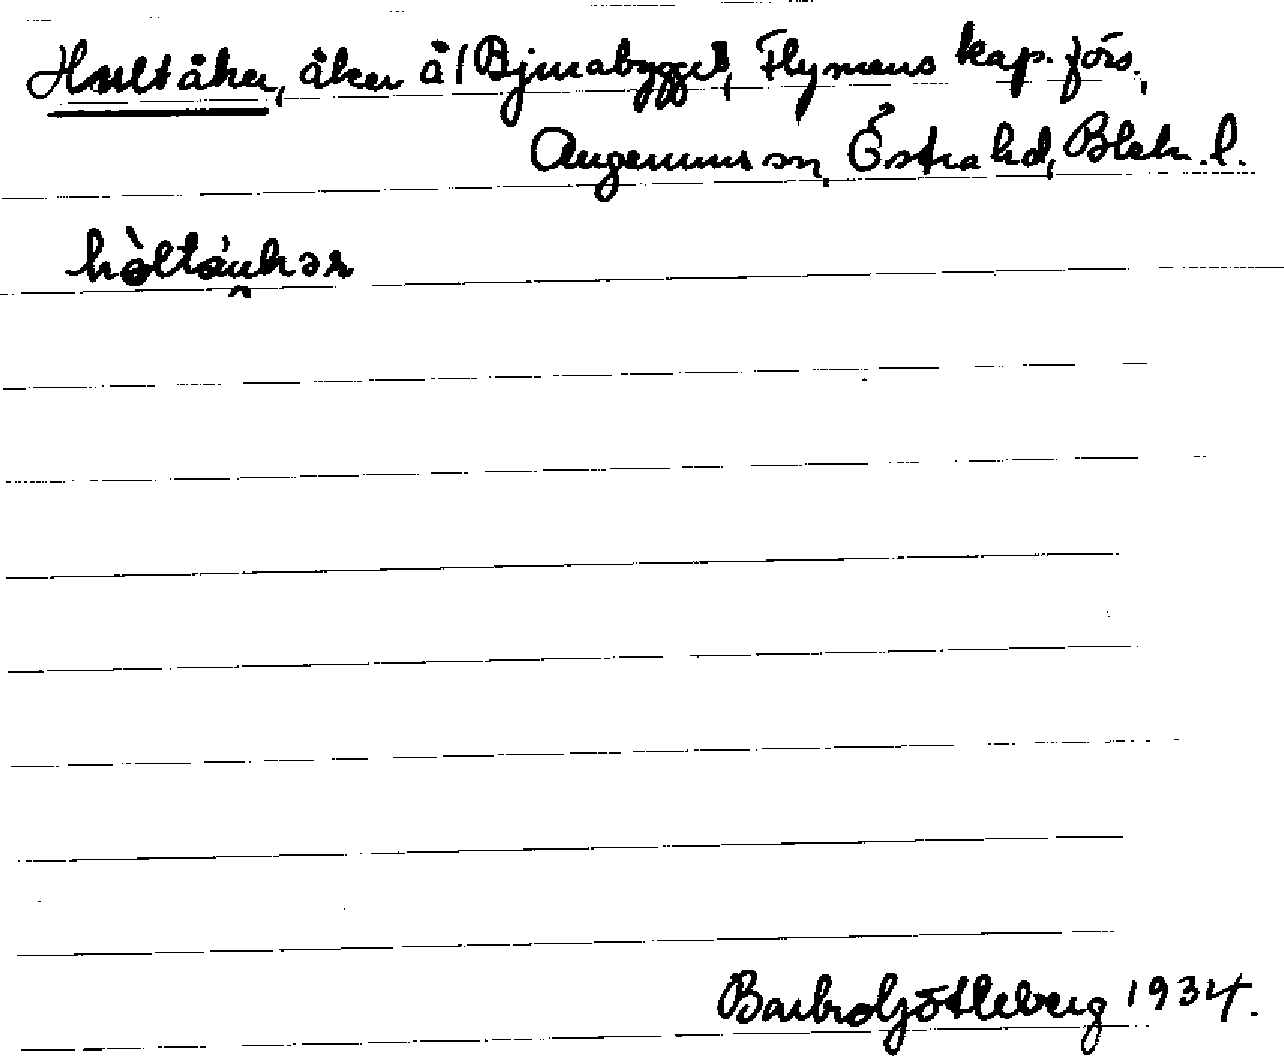 Hultåker, åker å 1 Bjurabygget, Flymens kap. förs.,
Augerums sn, Östra hd, Blek. l.
hòltáu̯kər
Barbro Götleberg 1934.